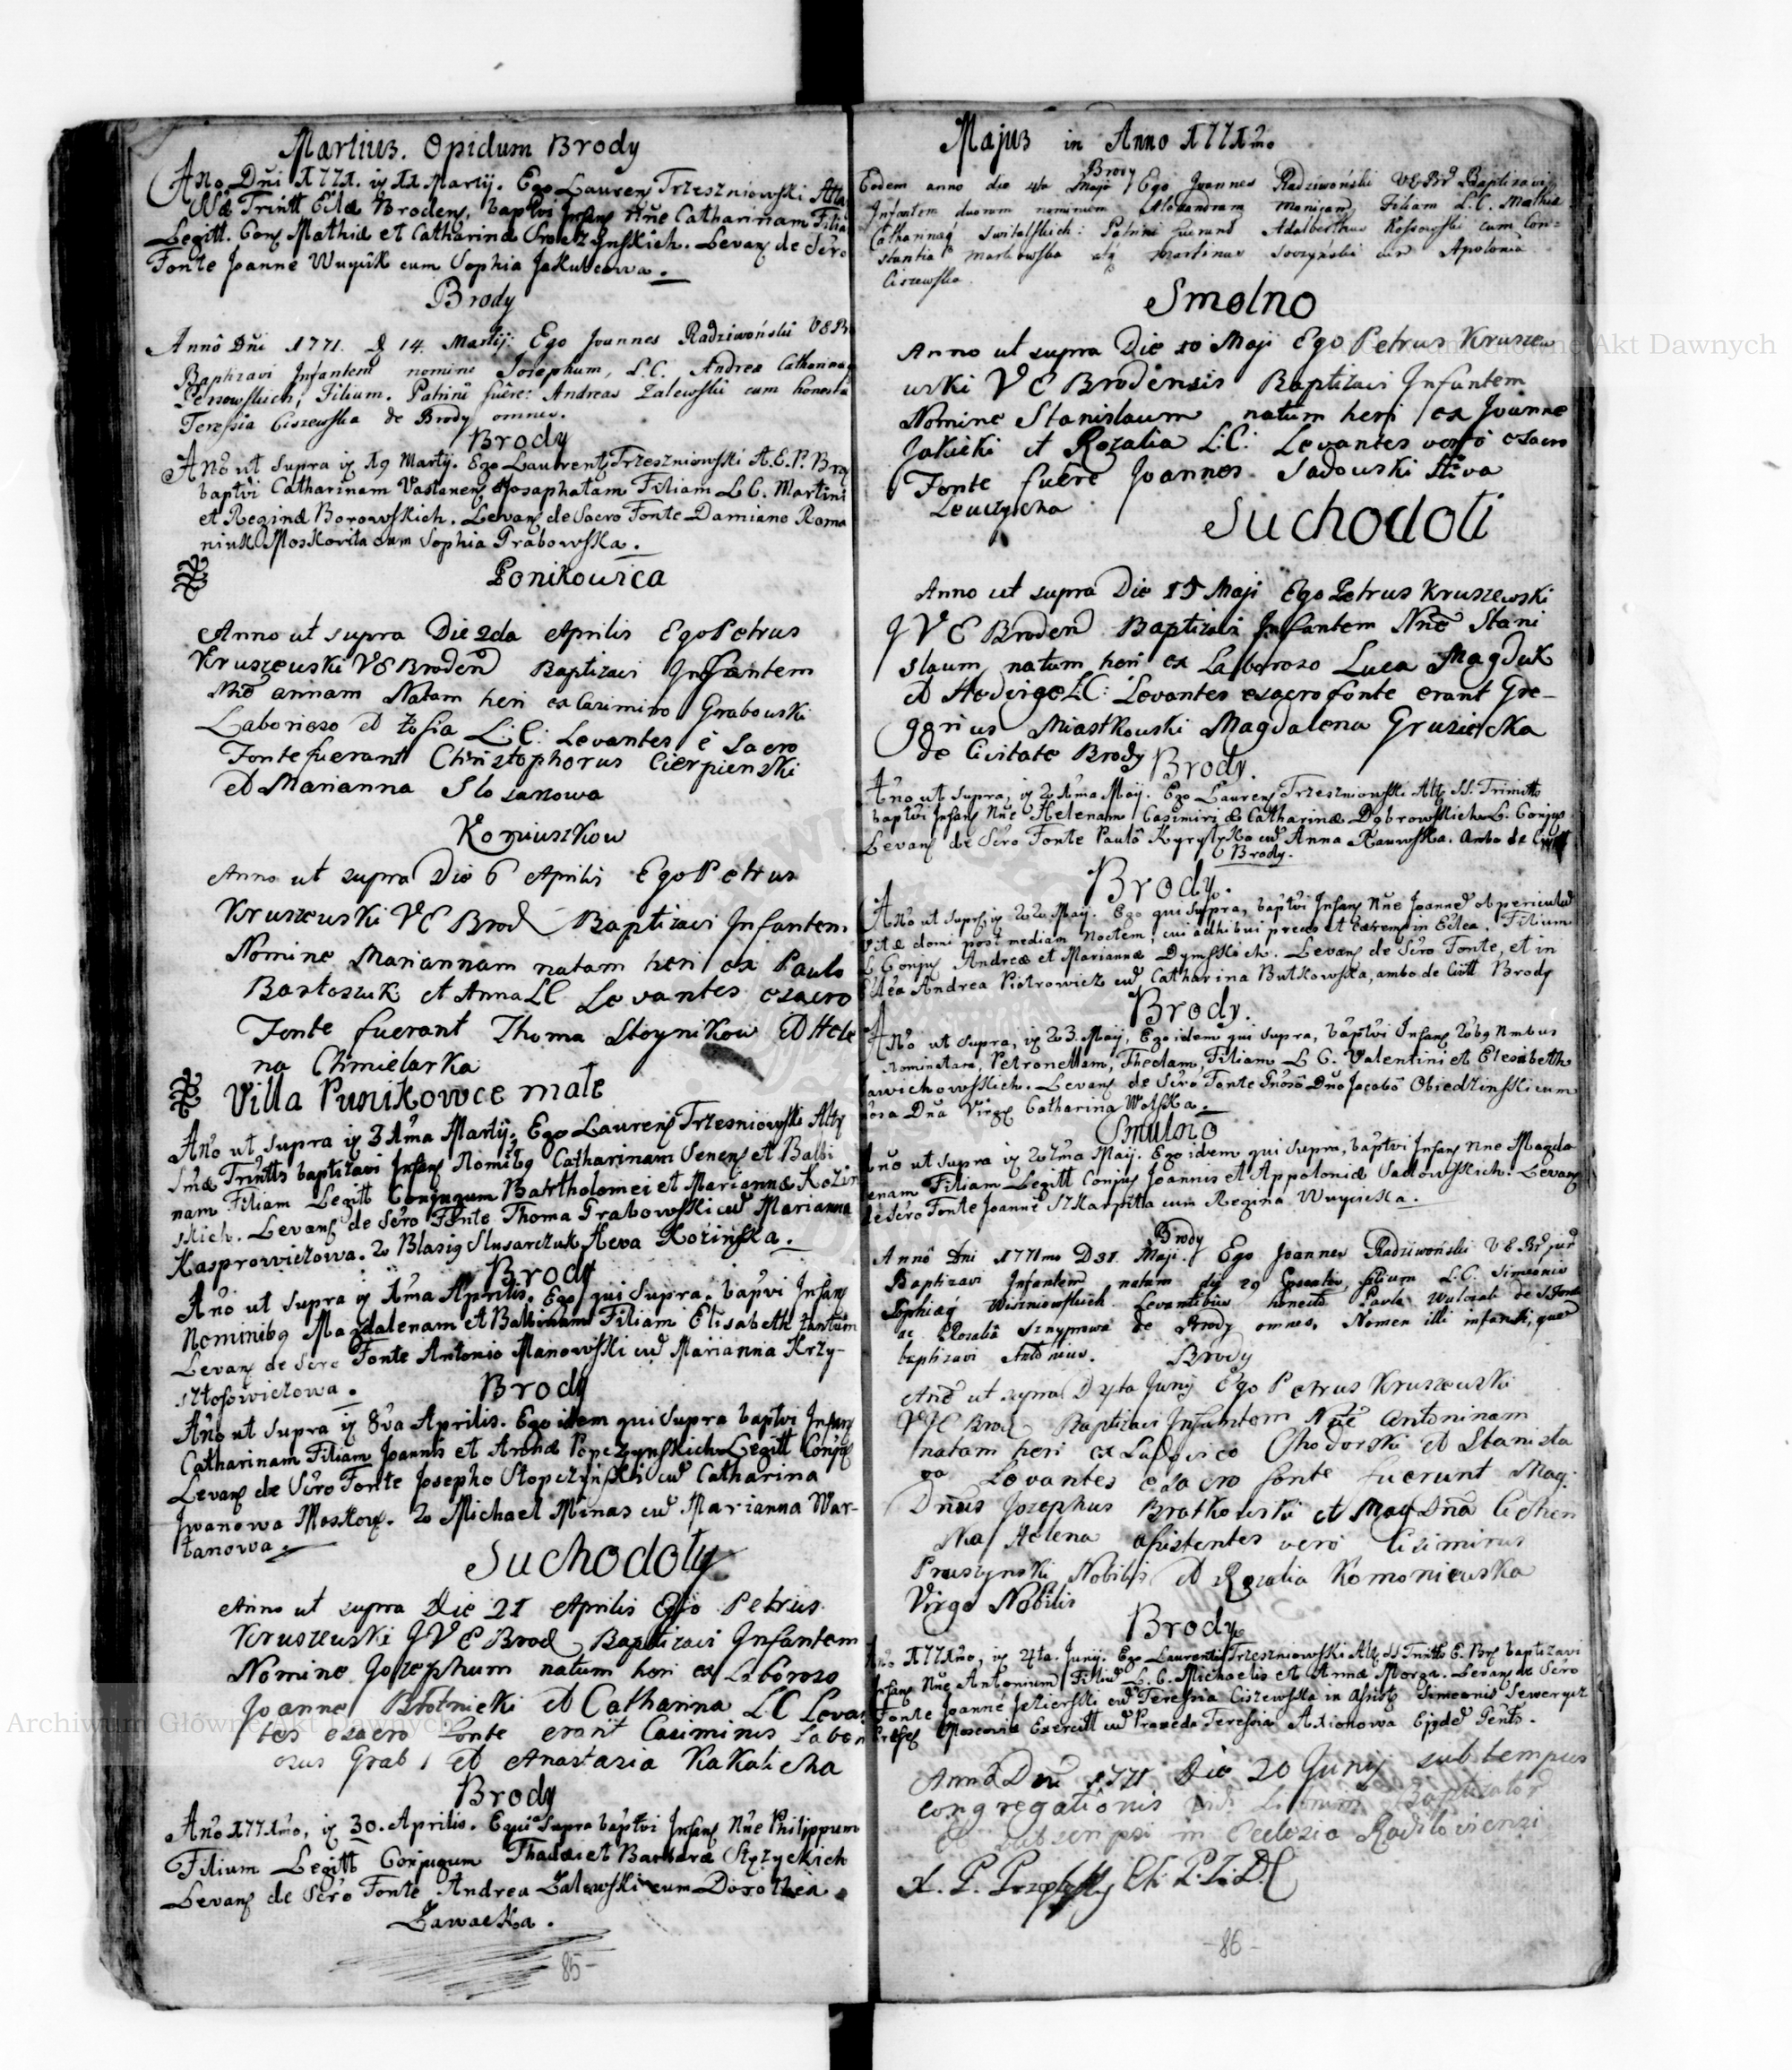 Martius. Opidum Brody
Ano Dni 1771. Martij. Ego Laurens Trzeszniowski
Trintt Brodens, baptvi Infans Nne Catharinam Filia
Legitt. Conj Mathiæ et Catharinæ Levans de Scro
Fonte Joanne Wuycik cum Sophia
Brody
Anno Dni 1771. D 14. Martij. Ego Joannes Radziwoński V E Br
Baptizavi Infantem nomine Josephum, L.C. Andrea Catharinaq
Filium. Patrini fuere: Andreas Zalewski cum honesta
Teressia Ciszewska de Brody omnes.
Brody
Ano ut supra 19 Martij. Ego Laurents Trzeszniowski A.E.P. Bro
baptvi Catharinam Josaphatam Filiam L C. Martini
et Reginæ Borowskich. Levans de Sacro Fonte Damiano Roma
niuk Moskovita cum Sophia Grabowska.
Ponikowica
Anno ut supra Die 2da Aprilis Ego Petrus
Kruszewski VE Broden Baptizavi Infantem
Nne annam Natam heri ex Casimiro Grabowski
Laborioso et Zofia L:C: Levantes è Sacro
Fonte fuerant Christophorus Cierpienski
et Marianna Slosarowa
Koniuszkow
Anno ut supra Die 6 Aprilis Ego Petrus
Kruszewski VE Brod Baptizavi Infantem
Nomine Mariannam natam heri ex Paulo
Bartoszuk et Anna LC Levantes esacro
Fonte fuerant Thoma Stoynikow et Hele
na Chmielarka
Villa Punikowce małe
Ano ut supra 31ma Martij. Ego Laurens Trzesniowski Altz
Smæ Trintts baptizavi Infans Nomibq Catharinam Senens et Balbi
nam Filiam Legitt Conjugum Bartholomei et Mariannæ Kozin
skich. Levans de Scro Fonte Thoma Grabowski cu Marianna
Kasprowiczowa. 2 Blasiq Slusarczuk Kozinska.
Brody
Ano ut supra 1ma Aprilis. Ego qui supra. bapvi Infans
Nominibq Magdalenam et Balbinam Filiam Elisabeth tantum
Levans de Scro Fonte Antonio Manowski cu Marianna Krzy-
sztofowiczowa.
Brody
Ano ut supra 8va Aprilis. Ego idem qui supra baptvi Infans
Catharinam Filiam Joannis et Annæ Popczynskich Legitt Conjus
Levans de Scro Fonte Josepho Stopczynski cu Catharina
Jwanowa Moskow. 2 Michael Minas cu Marianna War-
tanowa.
Suchodoły
Anno ut supra Die 21 Aprilis Ego Petrus
Kruszewski J V E Brod Baptizavi Infantem
Nomine Jozephum natum heri ex Laboroso
Joanne Brotnicki et Catharina LC Levan
tes esacro Fonte erant Casimirus Labori
osus Grab et Anastazia Kakalicha
Brody
Ano 1771mo, 30. Aprilis. Ego qui supra baptvi Infans Nne Philippum
Filium Legitt Conjugum Thadæi et Barbaræ Stężyckich
Levans de Scro Fonte Andrea Zalewski cum Dorothea
Zawacka.
85-
Majus in Anno 1771mo
Brody
Eodem anno die 4ta Maji Ego Joannes Radziwoński V E Br Baptizavi
Infantem duorum nominum Alexandram Monicam Filiam L.C. Mathia
Catharinaq Switalskich: Patrini fuerunt Adalberthus Kossowski cum Con=
stantia Markowska atq Martinus Soczyński cum Apolonia
Ciszewska
Smolno
Anno ut supra Die 10 Maji Ego Petrus Kruszew
wski V E Brodensis Baptizavi Infantem
Nomine Stanislaum natum heri ex Joanne
Jakicki et Rozalia L:C: Levantes vero esacro
Fonte fuere Joannes Sadowski
Leuczycha
Suchodoli
Anno ut supra Die 15 Maji Ego Petrus Kruszewski
J V E Broden Baptizavi Infantem Nne Stani
slaum natum heri ex Laboroso Luca Magduk
et Hedvige L:C: Levantes esacro fonte erant Gre-
gorius Miastkowski Magdalena Gruziecka
de Civitate Brody
Brody.
Ano ut supra, 21ma Maij. Ego Laurens Trzeszniowski Altz SS. Trinitts
baptvi Infans Nne Helenam Casimiri & Catharinæ Dąbrowskich L. Conjus
Levans de Scro Fonte Paulo Kyrylyka cu Anna Rauwska. Ambo de Civitt
Brody.
Brody.
Ano ut supra, 22 Maij. Ego qui supra, baptvi Infans Nne Joanned ob periculud
vitæ domi post mediam Noctem, cui adhibui preces et ceremo in Eclea. Filium
L Conjus Andreæ et Mariannæ Dymskich. Levans de Scro Fonte, et in
Eclea Andrea Piotrowicz cu Catharina Butkowska, ambo de Civitt Brody
Brody.
Ano ut supra, 23. Maij, Ego idem qui supra, baptvi Infans 2obq Nmbus
Nominatam, Petronellam, Theclam, Filiam L C. Valentini et Elesabeth
awichowskich. Levans de Scro Fonte Gnoso Dno Jacobo Obiedzinski cum
Dna Virg Catharina Wolska.
Smulno
Ano ut supra 27ma Maij. Ego idem qui supra, baptvi Infans Nne Magda
enam Filiam Legitt Conjus Joannis et Appoloniæ Sadowskich. Levans
de Scro Fonte Joanne Szkarpitta cum Regina Wuycicka.
Brody
Anno Dni 1771mo D 31 Maji. Ego Joannes Radziwoński V E Br
Baptizavi Infantem natum die 29 Filium L.C. Simeonis
Sophiaq Wisniowskich Levantibus honesto Paulo de S. Fonte
ac Rosalia Sznyprowa de Brody omnes, Nomen illi infanti, quem
baptizavi Antonius.
Brody
Ano ut supra D 4ta Junij Ego Petrus Kruszewski
V E Brod Baptizavi Infantem Nne Antoninam
natam heri ex Ludovico Chodorski et Stanisla
va Levantes esacro fonte fuerunt Mag:
Dnus Jozephus Bratkowski et Mag Dna Cichon
ska Helena Asistentes vero Casimirus
Pruszynski Nobilis et Rozalia Romoniewska
Virgo Nobilis
Brody
Ano 1771mo, 4ta. Junij. Ego Laurents Trzeszniowski Altz SS Trintts E. Brs baptizavi
Infans Nne Antonium Filiu L. C. Michaelis et Annæ Morga. Levans de Scro
Fonte Joanne Jezierski cu Teressia Ciszewska in Asists Simeonis
Moscoviæ Exercitt cu Teressia
Anno Dni 1771 Die 20 Junij sub tempus
congregationis Librum
subscripsi in Ecclesia
-86-
Archiwum Główne Akt Dawnych
Archiwum Główne Akt Dawnych